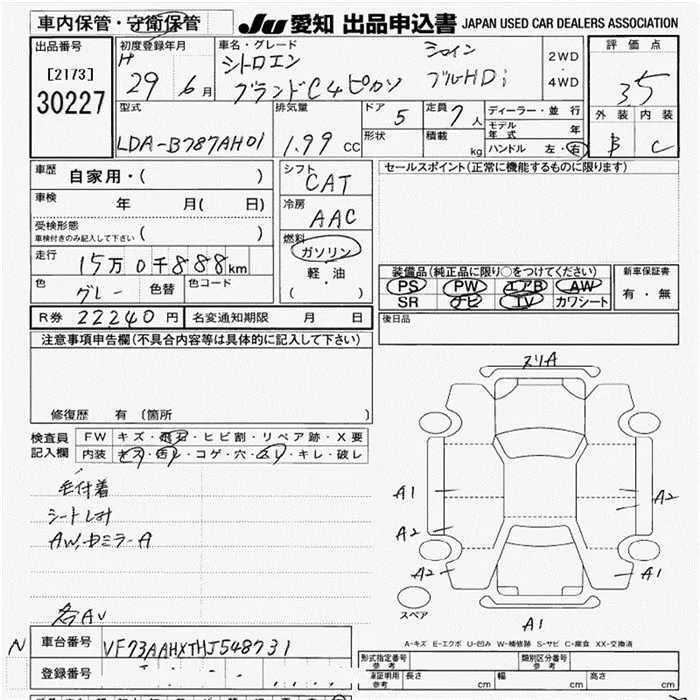 車内保管・守衛保管 JU 愛知 出品申込書 JAPAN USED CAR DEALERS ASSOCIATION
出品番号
[2173]
30227
初度登録年月
H 29 6 月
車名・グレード
シトロエン
グランドC4ピカソ ブルーHDi
2WD
・
4WD
評価点
3.5
外装 内装
B C
型式
LDA-B787AH01
排気量
1.99 CC
ドア 5
形状
定員 7 人
積載 kg
ディーラー・並行
モデル年式 年
ハンドル 左・右
車歴
自家用・( )
車検 年 月( 日)
受検形態
車検付きのみ記入して下さい ( )
走行
15万0千888km
色 グレー 色替 色コード
シフト
CAT
冷房
AAC
燃料
ガソリン
軽・油
( )
セールスポイント(正常に機能するものに限ります)
装備品(純正品に限り○をつけてください)
PS PW エアB AW
SR ナビ TV カワシート
新車保証書
有・無
R券 22240 円 名変通知期限 月 日
後日品
注意事項申告欄(不具合内容等は具体的に記入して下さい)
修復歴 有 〔箇所 〕
検査員
記入欄
FW キズ・飛石・ヒビ割・リペア跡・X要
内装 キズ・汚レ・コゲ・穴・ムレ・キレ・破レ
毛付着
AW,ドミラーA
各AV
スリA
A1
A2
A2
A2
A1
A1
スペア
A-キズ E-エクボ U-凹み W-補修跡 S-サビ C-腐食 XX-交換済
N 車台番号 VF73AAHXTHJ548731
登録番号
形式指定番号
参考
類別区分番号
参考
車証明用
参考
長さ cm
幅 cm
高さ cm